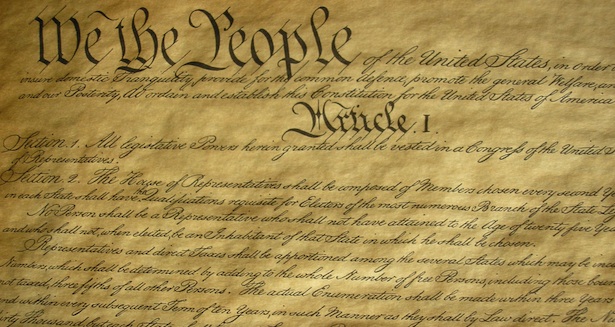 We the People of the United States, in Order
insure domestic Tranquility, provide for the common defence, promote the general Welfare, and
and our Posterity, do ordain and establish this Constitution for the United States of America
Article. I.
Section. 1. All legislative Powers herein granted shall be vested in a Congress of the United
of Representatives.
Section. 2. The House of Representatives shall be composed of Members chosen every second
in each State shall have the Qualifications requisite for Electors of the most numerous Branch of the State
No Person shall be a Representative who shall not have attained to the Age of twenty five Years
and who shall not, when elected, be an Inhabitant of that State in which he shall be chosen.
Representatives and direct Taxes shall be apportioned among the several States which may be
Numbers, which shall be determined by adding to the whole Number of free Persons, including those
not taxed, three fifths of all other Persons. The actual Enumeration shall be made within three Years
and within every subsequent Term of ten Years, in such Manner as they shall by Law direct. The
thirty Thousand, but each